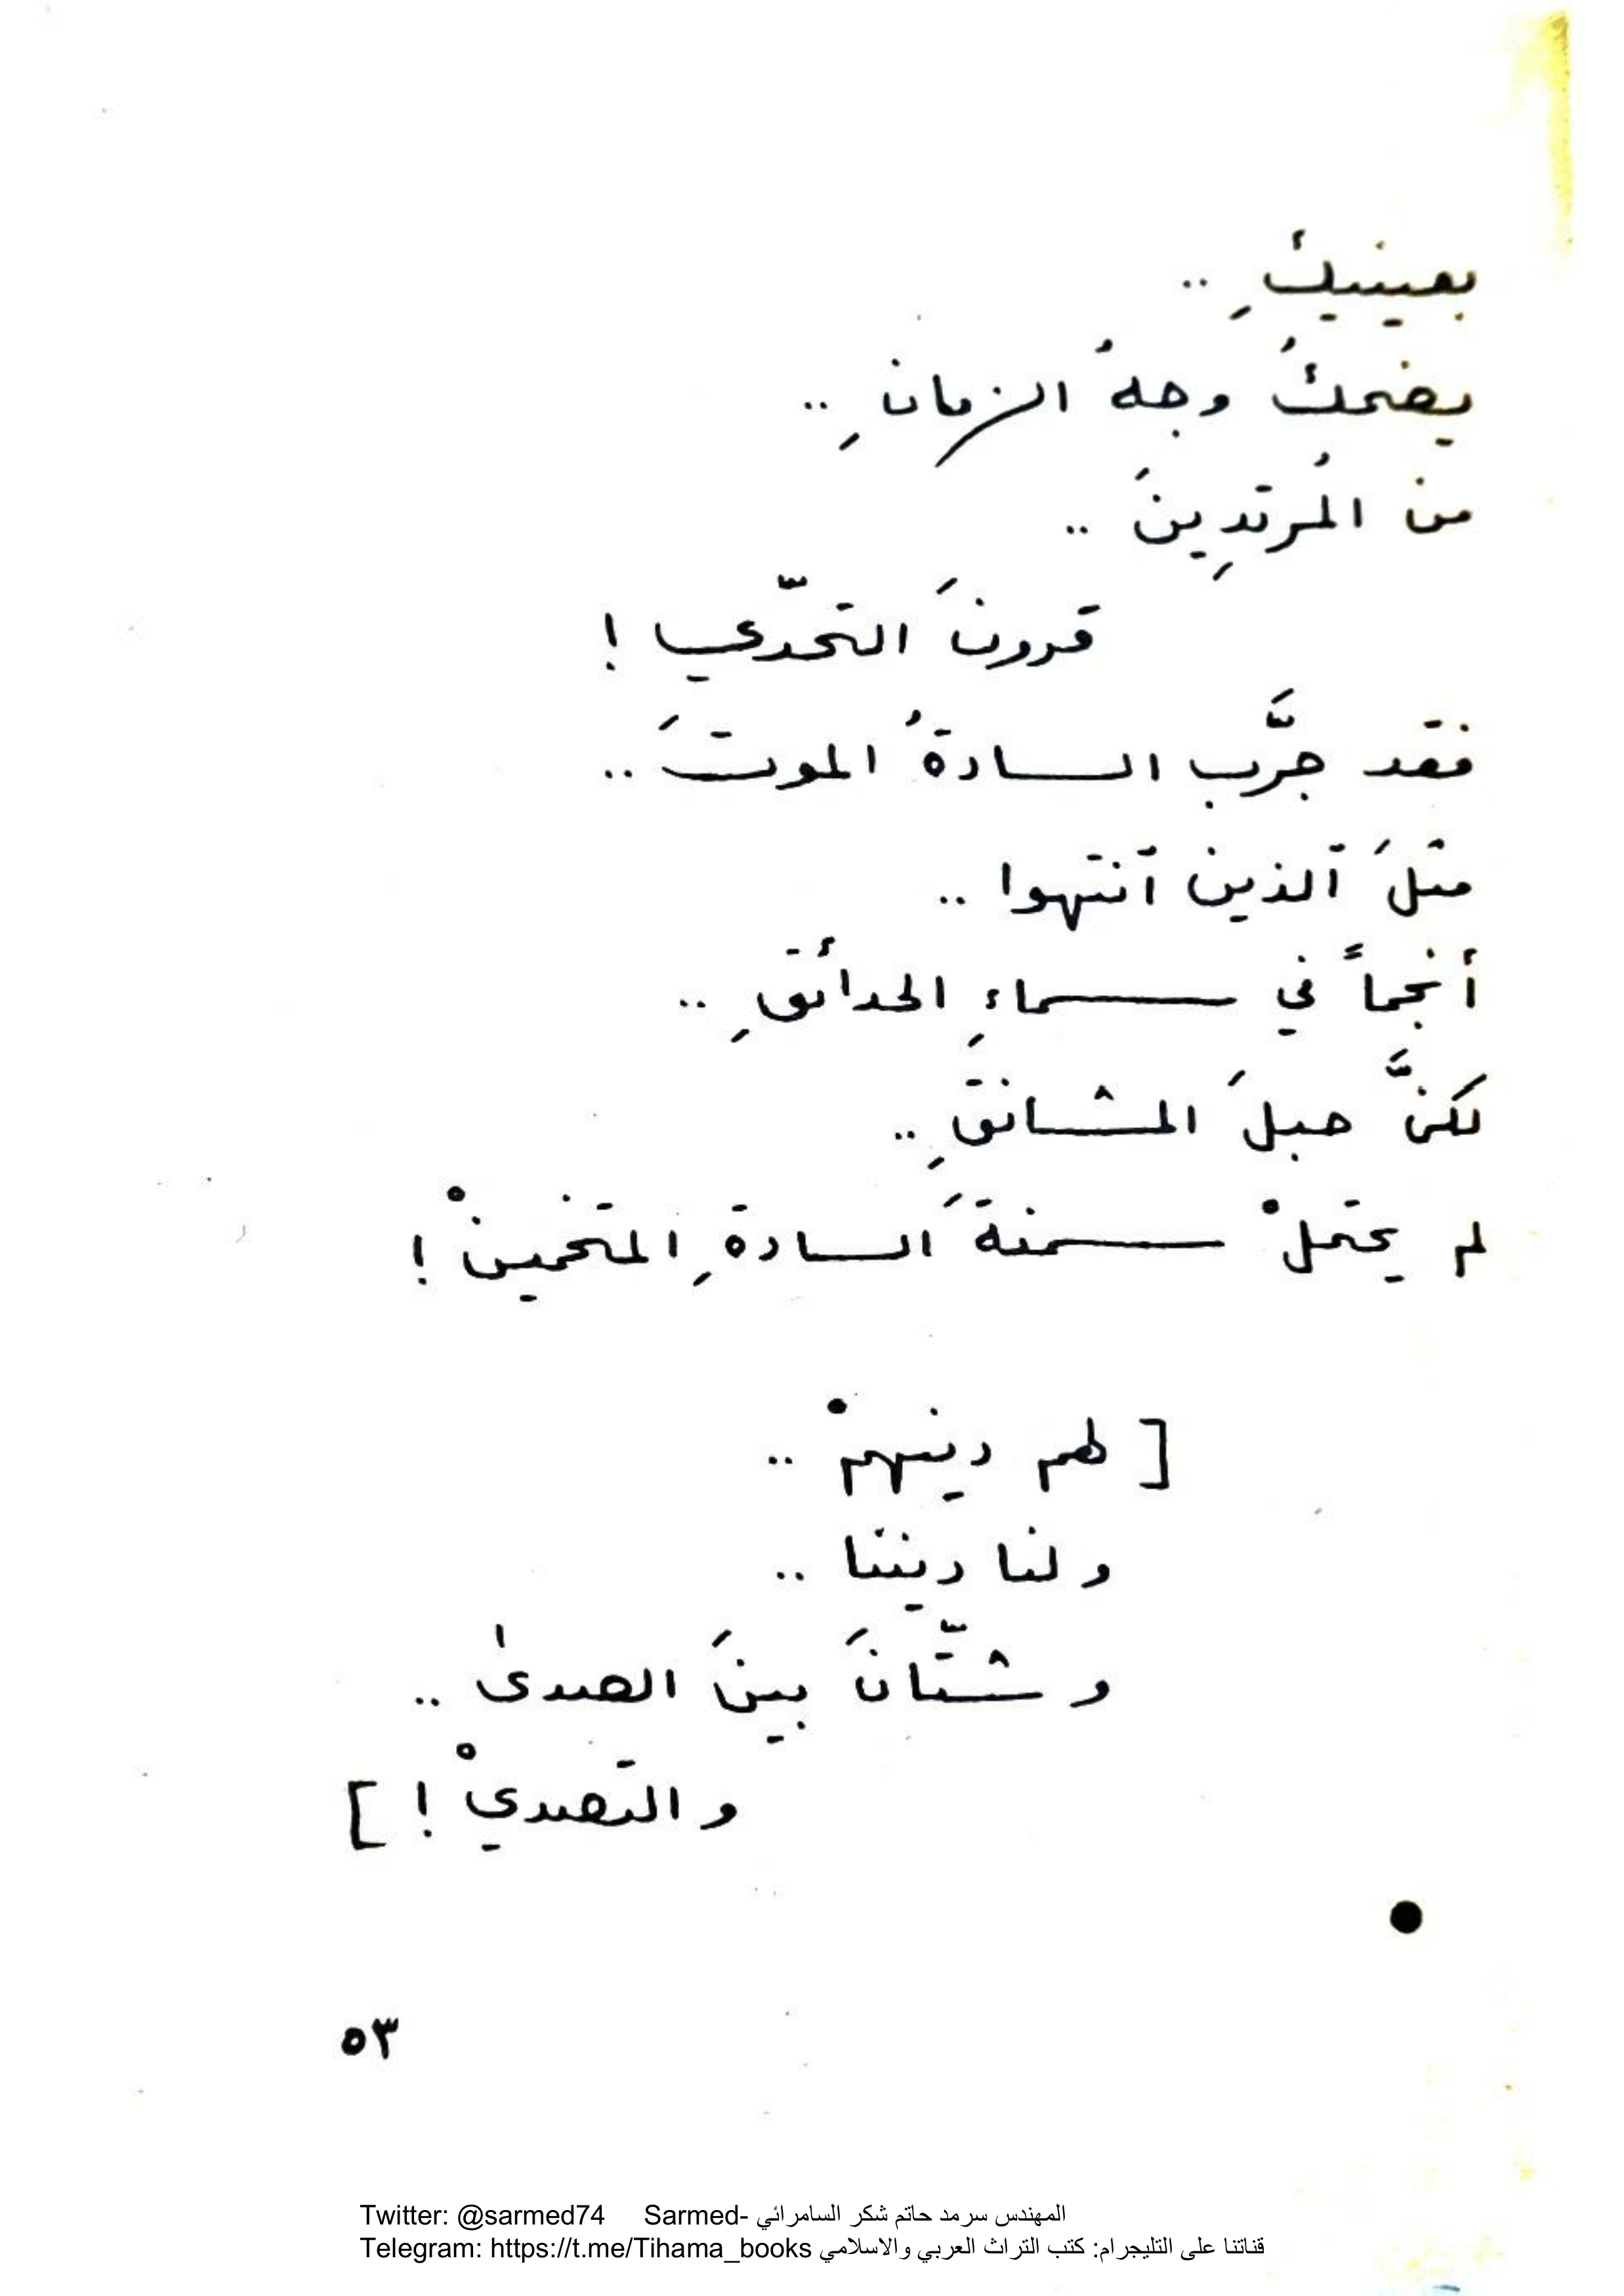 بعينيكِ ..
يضحكُ وجهُ الزمانِ ..
من المُرتدِينَ ..
قرونَ التحدّي !
فقد جرَّب السادةُ الموتَ ..
مثلَ آلذين آنتهوا ..
أنجماً في سماءِ الحدائقِ ..
لكنَّ حبلَ المشانقِ ..
لم يحتملْ سمنةَ السادةِ المتخمينْ !
[ لهم دينهمْ ..
ولنا ديننا ..
وشتّانَ بينَ الصدىٰ ..
والتصديْ ! ]
●
٥٣
Twitter: @sarmed74 Sarmed- المهندس سرمد حاتم شكر السامرائي
Telegram: https://t.me/Tihama_books قناتنا على التليجرام: كتب التراث العربي والاسلامي